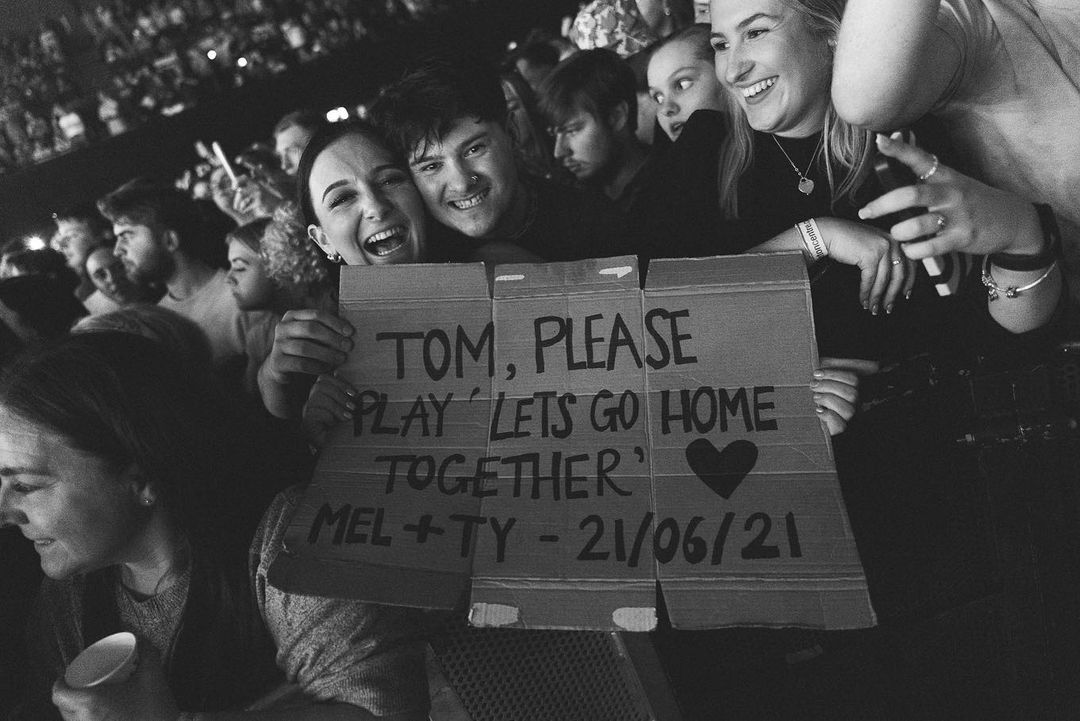 TOM, PLEASE
PLAY 'LETS GO HOME
TOGETHER' ♥
MEL + TY - 21/06/21